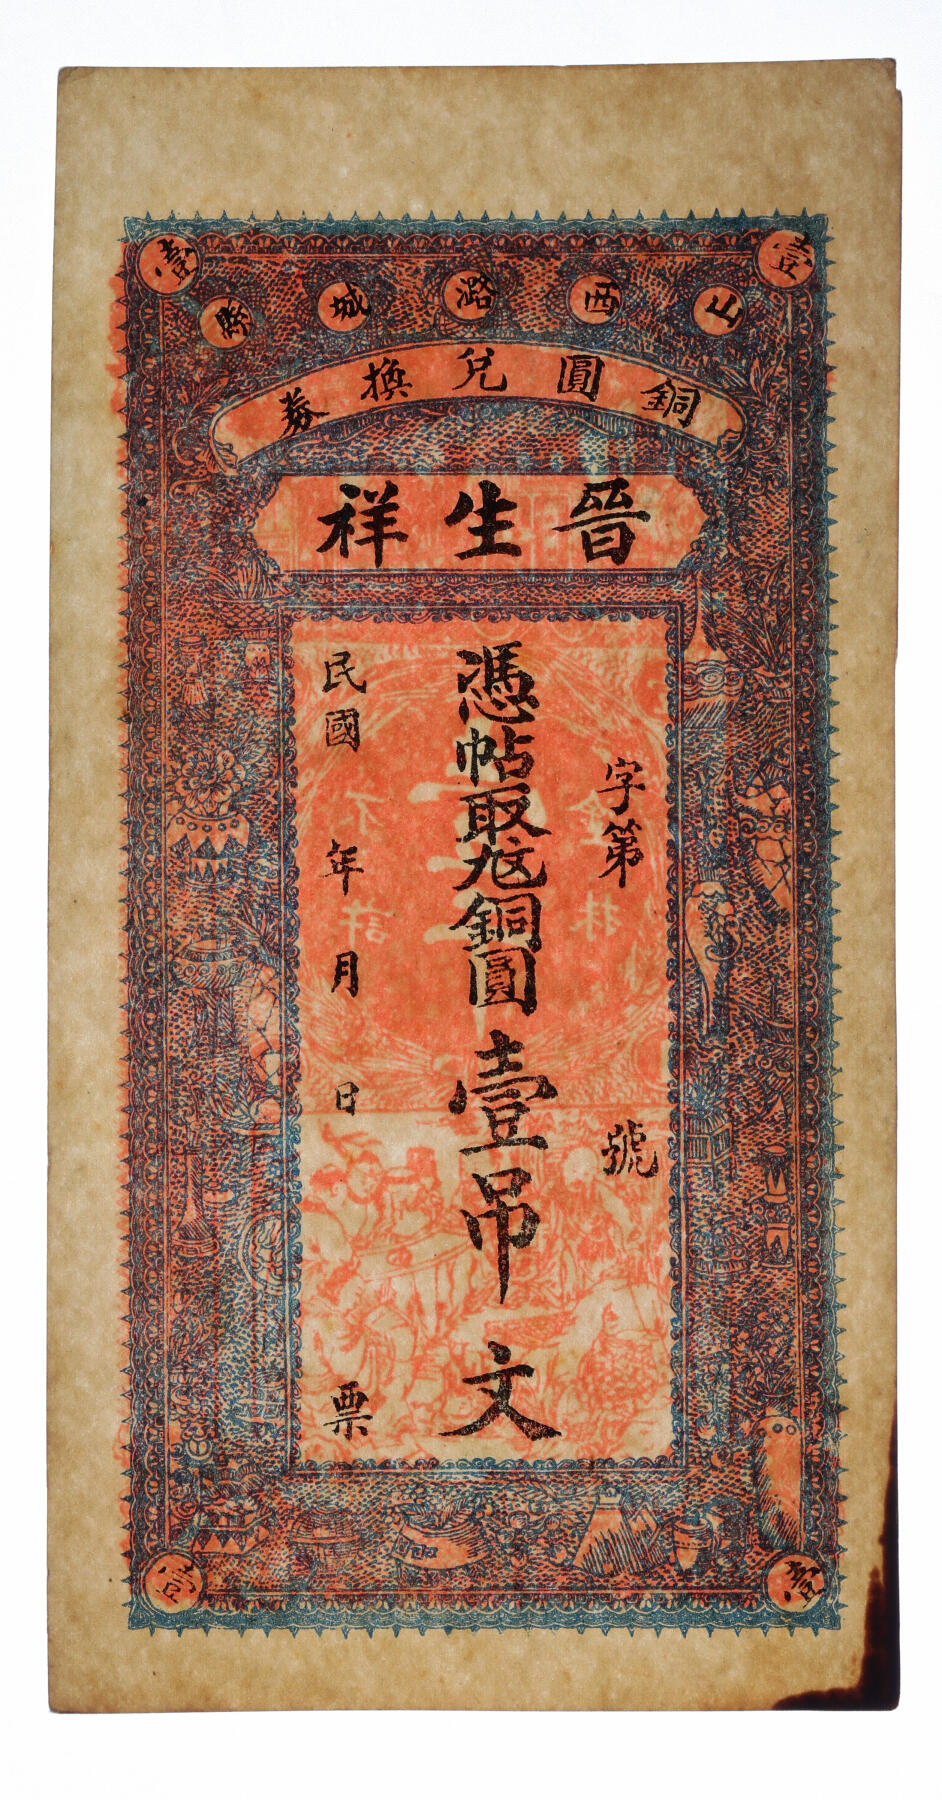 壹 壹
山西潞城縣
銅圓兌換券
晉生祥
字第 號
憑帖取兌銅圓壹吊文
民國 年 月 日 票
壹 壹